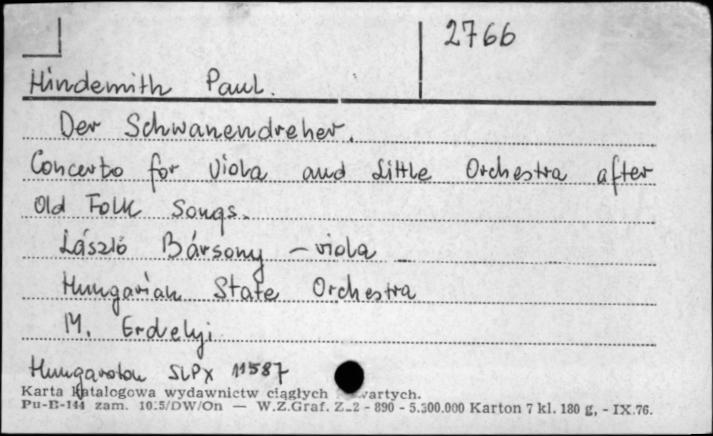 2766
Hindemith Paul.
Der Schwanendreher.
Concerto for Viola and Little Orchestra after
Old Folk Songs.
László Bársony – viola
Hungarian State Orchestra
M. Erdelyi
Hungaroton SLPX 11587
Karta katalogowa wydawnictw ciągłych wartych.
Pu-B-144 zam. 1015/DW/On — W.Z.Graf. Z-2 - 890 - 5.300.000 Karton 7 kl. 180 g, - IX.76.